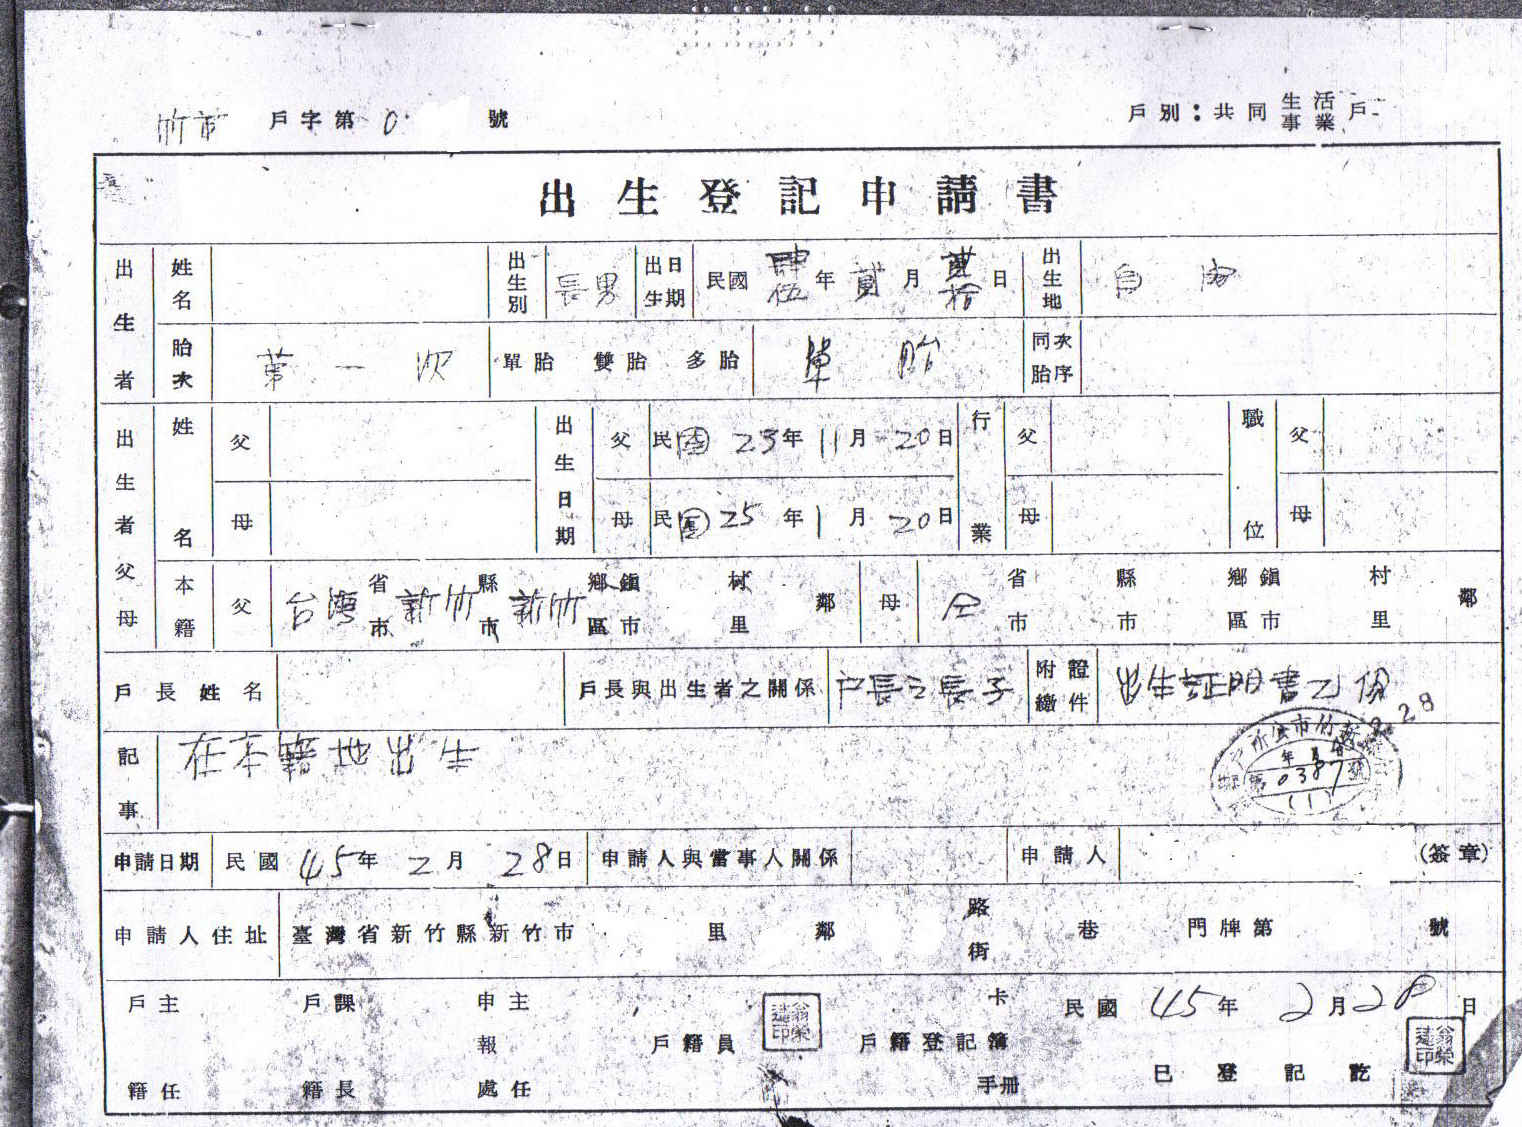 竹市 戶字第 0 號 戶別：共同 生活 事業 戶
出生登記申請書
出生者 姓名 出生別 長男 出生日期 民國 肆伍 年 貳 月 貳拾 日 出生地 自宅
胎次 第一次 單胎 雙胎 多胎 單胎 同胎次序
出生者父母 姓名 父 出生日期 父 民國 23 年 11 月 20 日 行業 父 職位 父
母 母 民國 25 年 1 月 20 日 母 母
本籍 父 台灣 省市 新竹 縣市 新竹 鄉鎮區市 村里 鄰 母 仝 省市 縣市 鄉鎮區市 村里 鄰
戶長姓名 戶長與出生者之關係 戶長之長子 附繳證件 出生証明書乙份
記事 在本籍地出生
2.28
新竹市公所
年 月 日
第 0387 號
(1)
申請日期 民國 45 年 2 月 28 日 申請人與當事人關係 申請人 (簽章)
申請人住址 臺灣省新竹縣新竹市 里 鄰 路街 巷 門牌第 號
戶籍主任 戶籍課長 申報處主任 戶籍員 翁榮達印 戶籍登記簿 卡 手冊 民國 45 年 2 月 28 日
已登記訖 翁榮達印